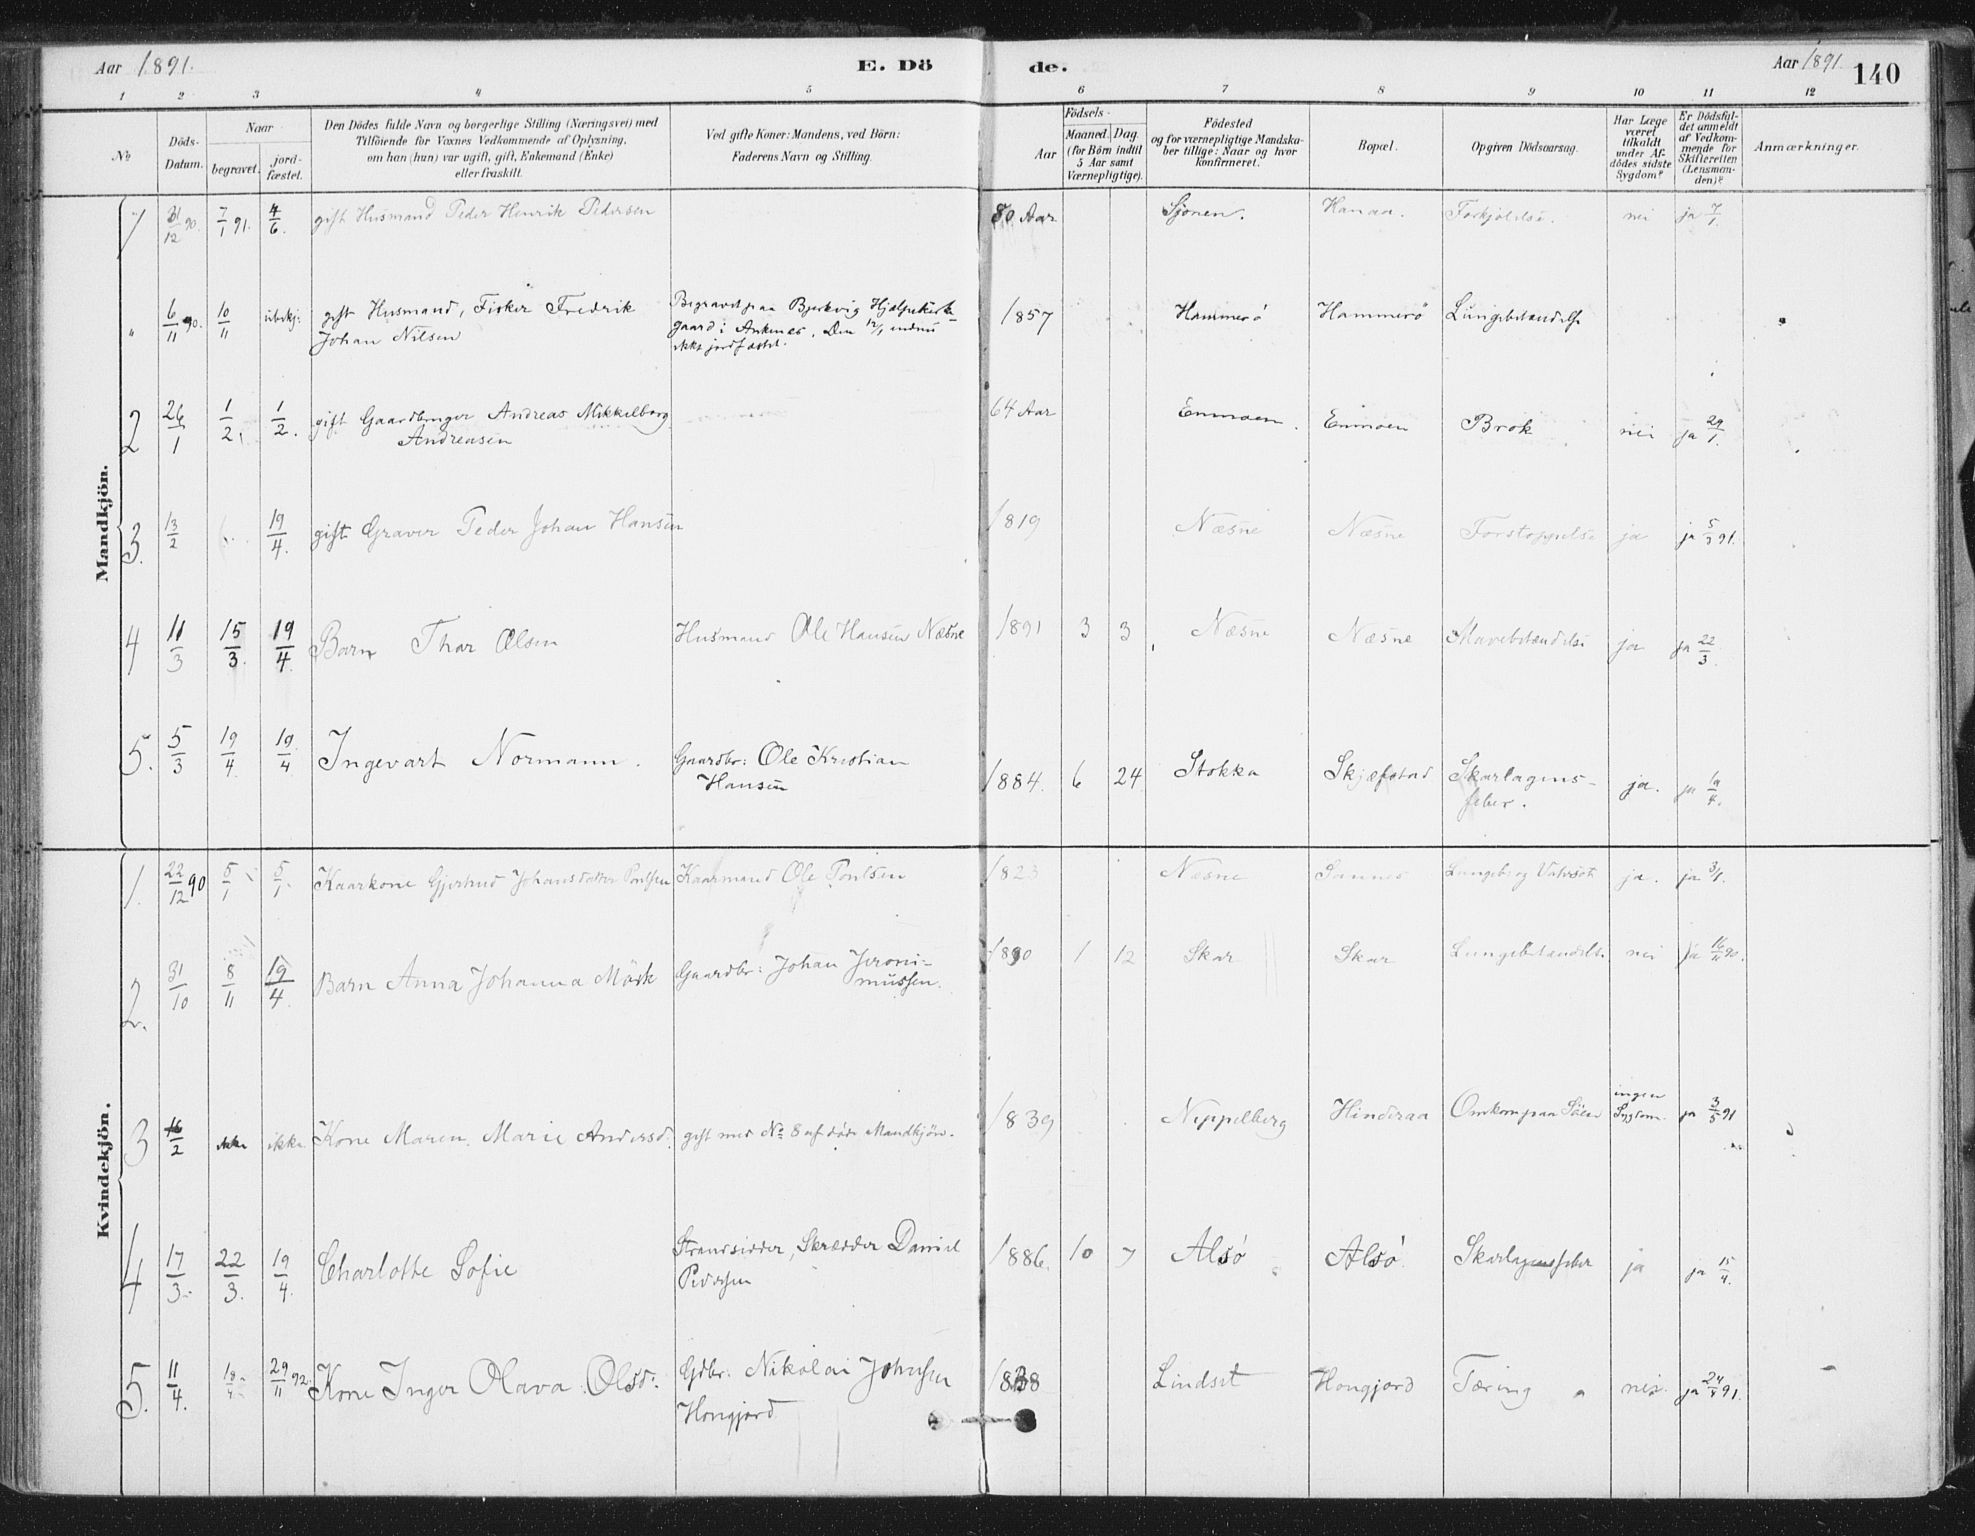 Aar 1891.
E. Dö
de.
Aar 1891.
140
1 2 3 4 5 6 7 8 9 10 11 12
No
Döds-Datum.
Naar
begravet.
jord-fæstet.
Den Dödes fulde Navn og borgerlige Stilling (Næringsvei) med
Tilföiende for Voxnes Vedkommende af Oplysning,
om han (hun) var ugift, gift, Enkemand (Enke)
eller fraskilt.
Ved gifte Koner: Mandens, ved Börn:
Faderens Navn og Stilling.
Födsels-
Aar
Maaned. Dag.
(for Börn indtil
5 Aar samt
Værnepligtige).
Födested
og for værnepligtige Mandska-
ber tillige: Naar og hvor
konfirmeret.
Bopæl.
Opgiven Dödsaarsag.
Har Læge
været
tilkaldt
under Af-
dödes sidste
Sygdom?
Er Dödsfal-
det anmeldt
af Vedkom-
mende for
Skifteretten
(Lensman-
den)?
Anmærkninger.
Mandkjön.
1 31/12 90. 7/1 91. 4/6. gift Husmand Peder Henrik Pedersen 80 Aar Sjonen. Hanaa. Forkjølelse. nei ja 7/1.
" 6/11 90. 10/11 gift Husmand, Fisker Fredrik Begravet paa Bjerkvig Hjælpekirke- 1857 Hammerö Hammerö Lungebetændelse
Johan Nilsen gaard i Ankenes. Den 12/1 endnu
ikke jordfæstet.
2 26/1 1/2. 1/2. gift Gaardbruger Andreas Mikkelborg 64 Aar Enmoen. Enmoen Brok nei ja 29/1.
Andreasen
3. 13/2 19/4. gift Graver Peder Johan Hansen 1819 Næsne Næsne Forstoppelse ja ja 5/3 91.
4 11/3 15/3. 19/4. Barn Thor Olsen Husmand Ole Hansen Næsne 1891 3 3 Næsne Næsne Mavebetændelse ja ja 22/3.
5. 5/3 19/4. 19/4 Ingevart Normann. Gaardbr: Ole Kristian 1884. 6 24 Stokka Skjæfstad Skarlagens-
Hansen feber. ja. ja 19/4.
Kvindekjön.
1. 22/12 90 5/1 5/1 Kaarkone Gjertrud Johansdatter Poulsen Kaarmand Ole Poulsen 1823 Næsne Sannes Lungeb og Vatersot ja. ja 3/1.
2. 31/10 8/11 19/4. Barn Anna Johanna Mörk Gaardbr: Johan Jeroni- 1890 1 12 Skar Skar Lungebetændelse nei ja 16/11 90.
mussen.
3 16/2 ikke ikke Kone Maren Marie Andersd. gift med No 8 af døde Mandkjön. 1839 Neppelberg Hinderaa Omkom paa Söen ingen
Sygdom ja 3/5 91
4 17/3. 22/3. 19/4. Charlotte Sofie Strandsidder, Skrædder Daniel 1886. 10 7 Alsö Alsö Skarlagensfeber ja ja 15/4.
Pedersen
5. 11/4. 18/4 29/11 92. Kone Inger Olava Olsd: Gdbr: Nikolai Johnsen 1838 Lindset Hongjord Tæring nei. ja 24/4 91.
Hongjord